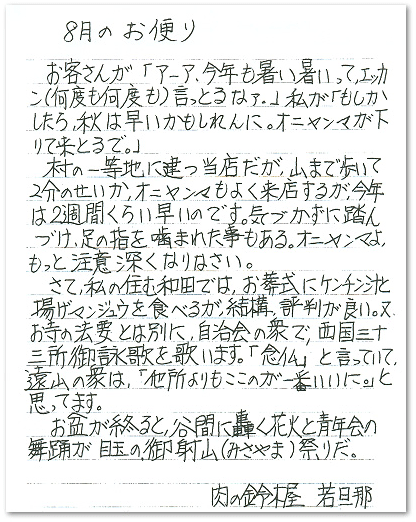 8月のお便り
お客さんが「アーア、今年も暑い暑いって、エッカ
ン(何度も何度も)言っとるなァ。」私が「もしか
したら、秋は早いかもしれんに。オニヤンマが下
りて来とるで。」
村の一等地に建つ当店だが、山まで歩いて
2分のせいか、オニヤンマもよく来店するが、今年
は2週間くらい早いのです。気づかずに踏ん
づけ、足の指を噛まれた事もある。オニヤンマよ、
もっと注意深くなりなさい。
さて、私の住む和田では、お葬式にケンチン汁と
揚げマンジュウを食べるが、結構、評判が良い。又、
お寺の法要とは別に、自治会の衆で、西国三十
三所御詠歌を歌います。「念仏」と言っていて、
遠山の衆は、「他所よりもここのが一番いいに。」と
思ってます。
お盆が終ると、谷間に轟く花火と青年会の
舞踊が目玉の御射山(みさやま)祭りだ。
肉の鈴木屋 若旦那